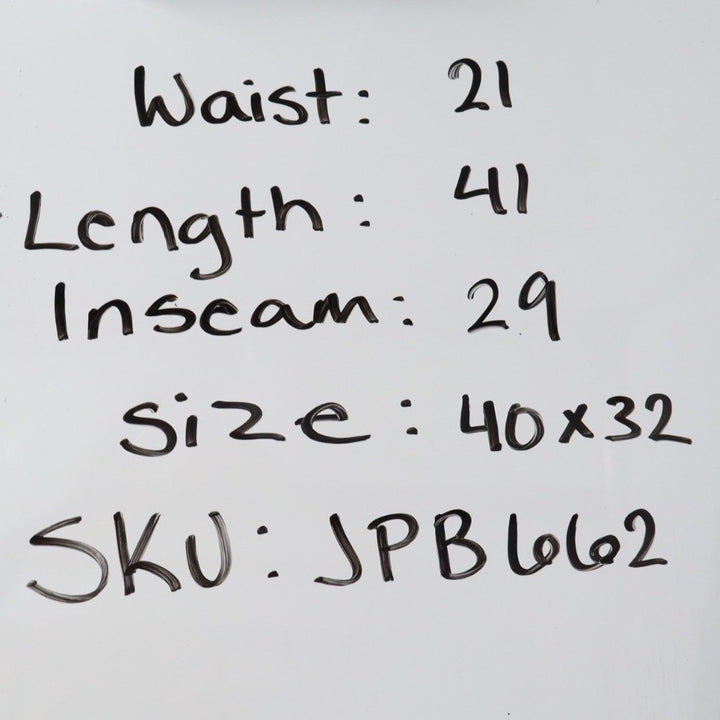 Waist: 21
Length: 41
Inseam: 29
Size: 40x32
SKU: JPB662